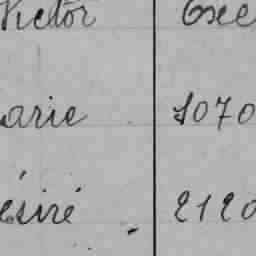 Victor
arie 1070
ésiré 2120